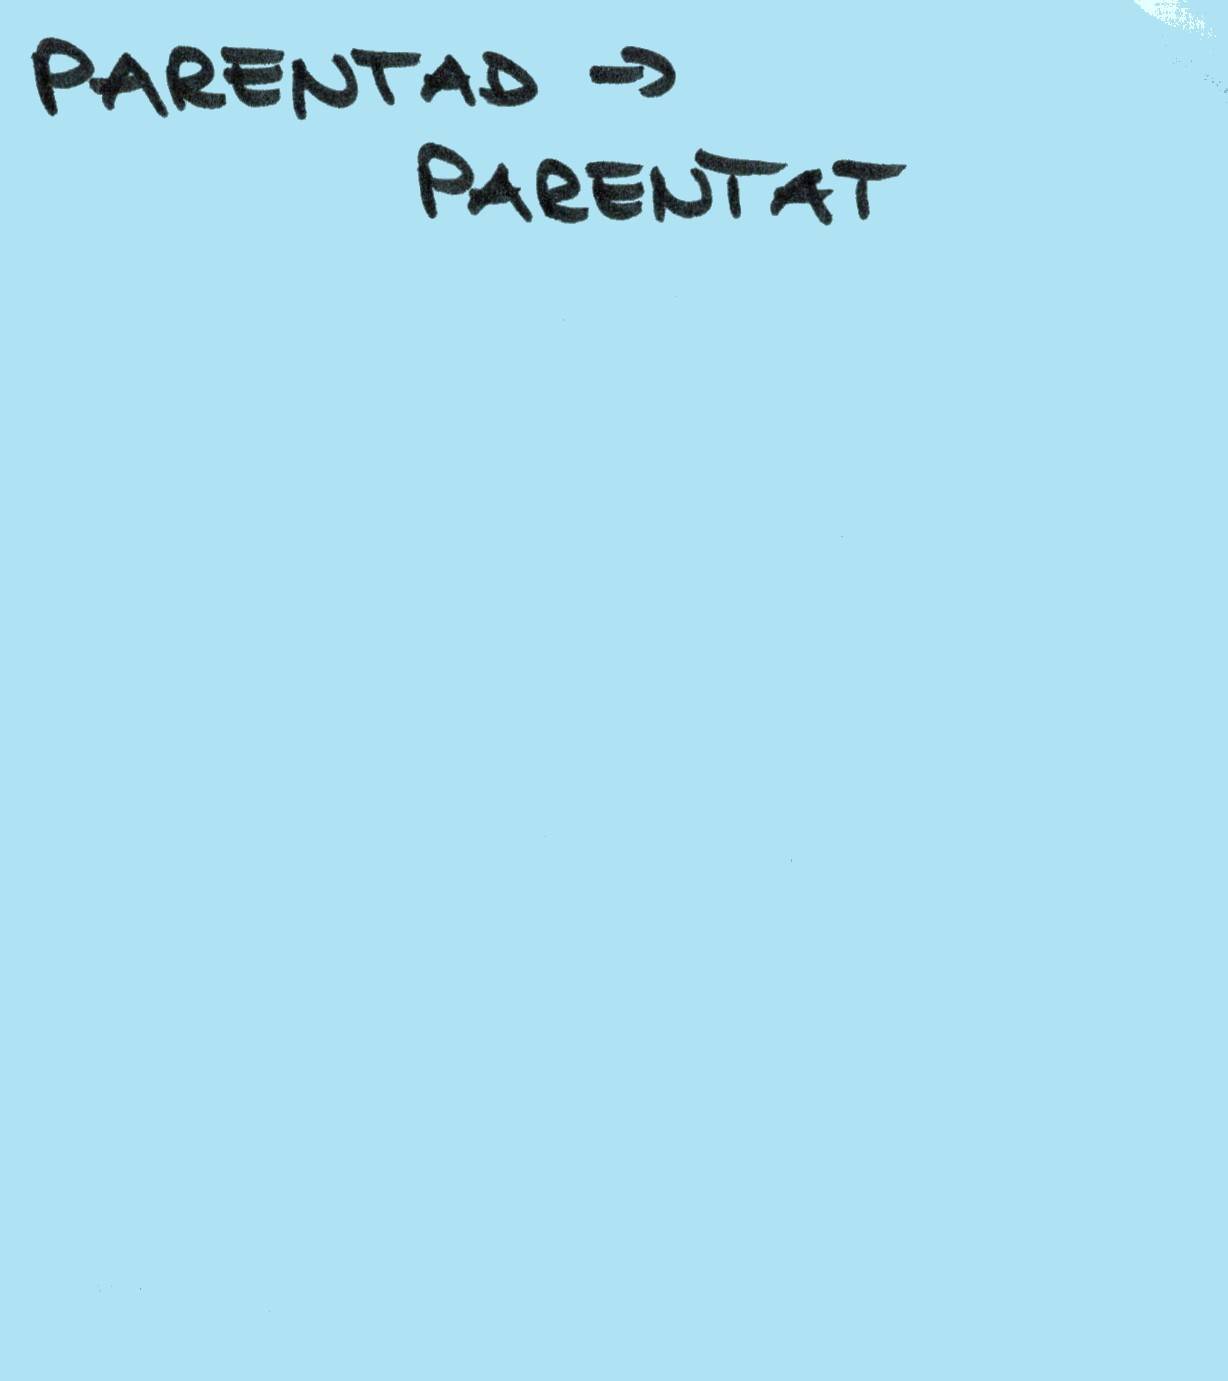 PARENTAD →
PARENTAT